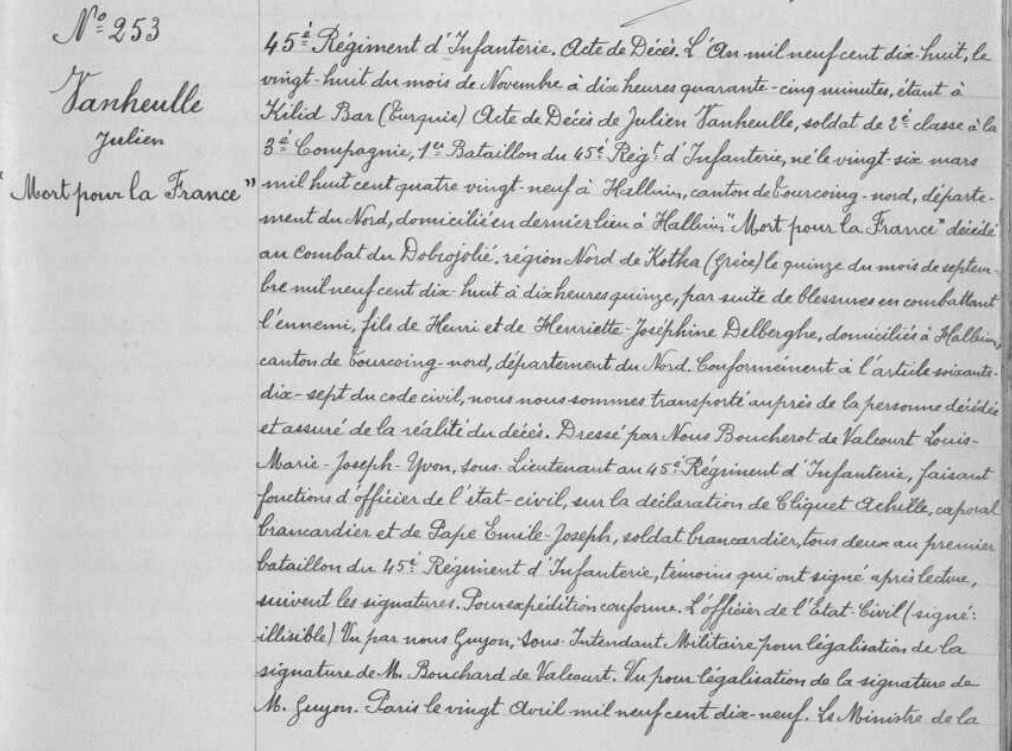 N° 253
Vanheulle
Julien
"Mort pour la France"
45è Régiment d'Infanterie. Acte de Décès. L'An mil neuf cent dix-huit, le
vingt-huit du mois de Novembre à dix heures quarante-cinq minutes, étant à
Kilid Bar (Turquie) Acte de Décès de Julien Vanheulle, soldat de 2è classe à la
3è Compagnie, 1er Bataillon du 45è Régt d'Infanterie, né le vingt-six mars
mil huit cent quatre vingt-neuf à Halluin, canton de Tourcoing-nord, départe-
ment du Nord, domicilié en dernier lieu à Halluin, "Mort pour la France" décédé
au combat du Dobrojolié, région Nord de Kotka (Grèce) le quinze du mois de septem-
bre mil neuf cent dix-huit à dix heures quinze, par suite de blessures en combattant
l'ennemi, fils de Henri et de Henriette-Joséphine Delberghe, domiciliés à Halluin,
canton de Tourcoing-nord, département du Nord. Conformément à l'article soixante-
dix-sept du code civil, nous nous sommes transporté auprès de la personne décédée
et assuré de la réalité du décès. Dressé par Nous Boucherot de Valcourt Louis-
Marie-Joseph-Yvon, Sous-Lieutenant au 45è Régiment d'Infanterie, faisant
fonctions d'officier de l'état-civil, sur la déclaration de Cliquet Achille, caporal
brancardier et de Pape Emile-Joseph, soldat brancardier, tous deux au premier
bataillon du 45è Régiment d'Infanterie, témoins qui ont signé après lecture,
suivent les signatures. Pour expédition conforme. L'officier de l'Etat-Civil (signé:
illisible) Vu par nous Guyon, Sous-Intendant Militaire pour légalisation de la
signature de M. Bouchard de Valcourt. Vu pour légalisation de la signature de
M. Guyon. Paris le vingt Avril mil neuf cent dix-neuf. Le Ministre de la